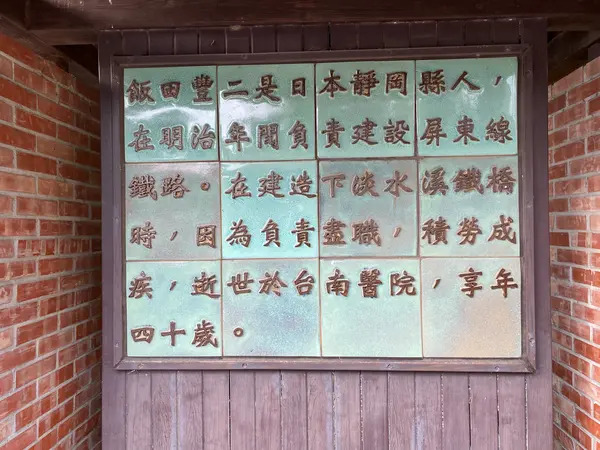 飯田豐二是日本靜岡縣人，
在明治年間負責建設屏東線
鐵路。在建造下淡水溪鐵橋
時，因為負責盡職，積勞成
疾，逝世於台南醫院，享年
四十歲。